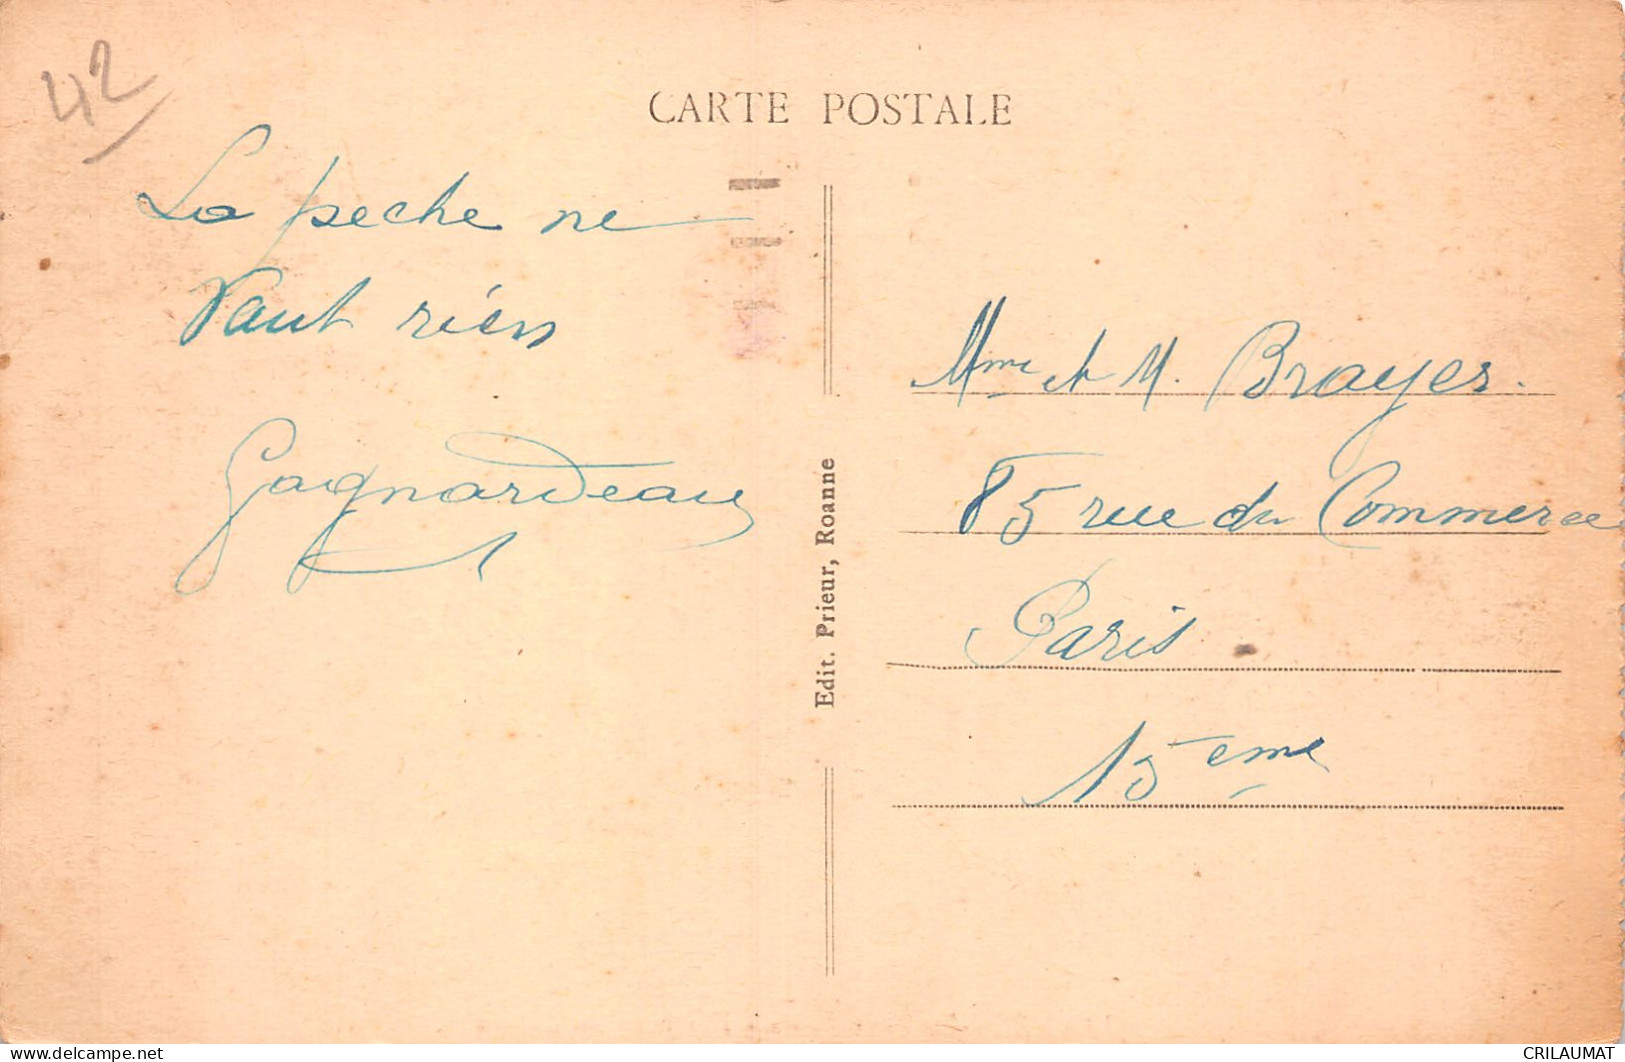 42
CARTE POSTALE
La peche ne
Vaut rien
Gaignardeau
Edit. Prieur, Roanne
Mme et M. Brayer.
85 rue du Commerce
Paris
15eme
delcampe.net
CRILAUMAT